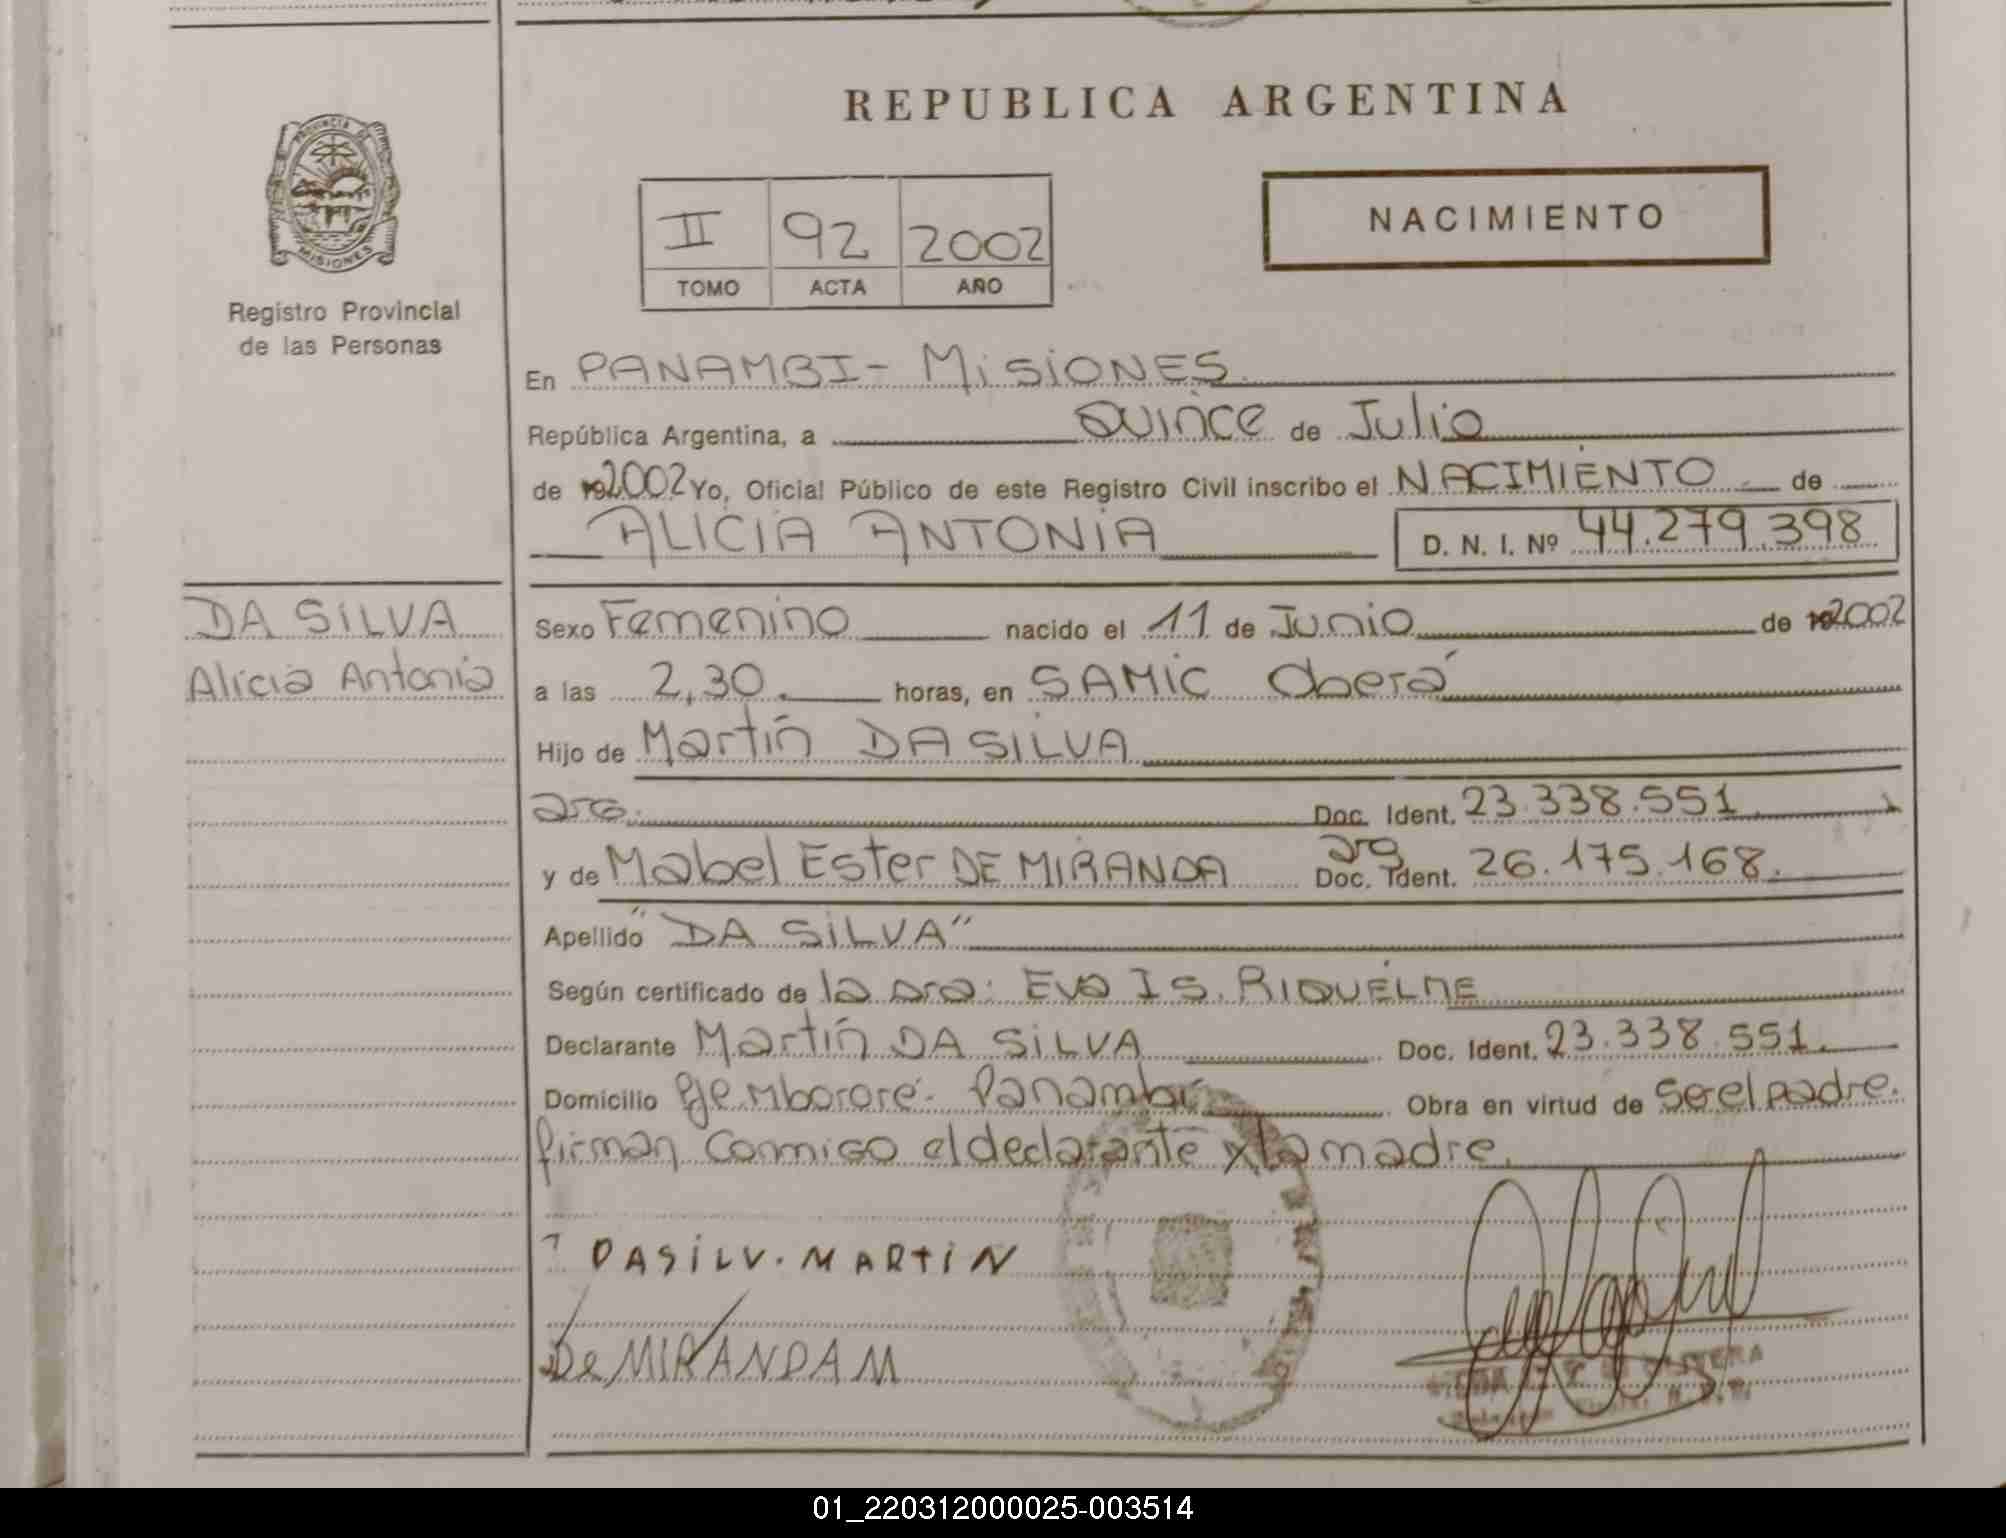 REPUBLICA ARGENTINA
PROVINCIA DE
MISIONES
Registro Provincial
de las Personas
II 92 2002
TOMO ACTA AÑO
NACIMIENTO
En PANAMBI - MisiONES.
República Argentina, a Quince de Julio
de 192002 Yo, Oficial Público de este Registro Civil inscribo el NACIMIENTO de
ALICIA ANTONIA D. N. I. Nº 44.279.398
DA SILVA
Alicia Antonia
Sexo Femenino nacido el 11 de Junio de 192002
a las 2,30. horas, en SAMIC Oberá
Hijo de Martín DA SILVA
arg. Doc. Ident. 23.338.551
y de Mabel Ester DE MIRANDA arg Doc. Ident. 26.175.168.
Apellido "DA SILVA"
Según certificado de la Dra: Eva IS. RIQUELME
Declarante Martín DA SILVA Doc. Ident. 23.338.551.
Domicilio Pje Mbororé - Panambí Obra en virtud de ser el padre.
firman conmigo el declarante y la madre.
DASILV. MARTIN
De MIRANDA M
01_220312000025-003514